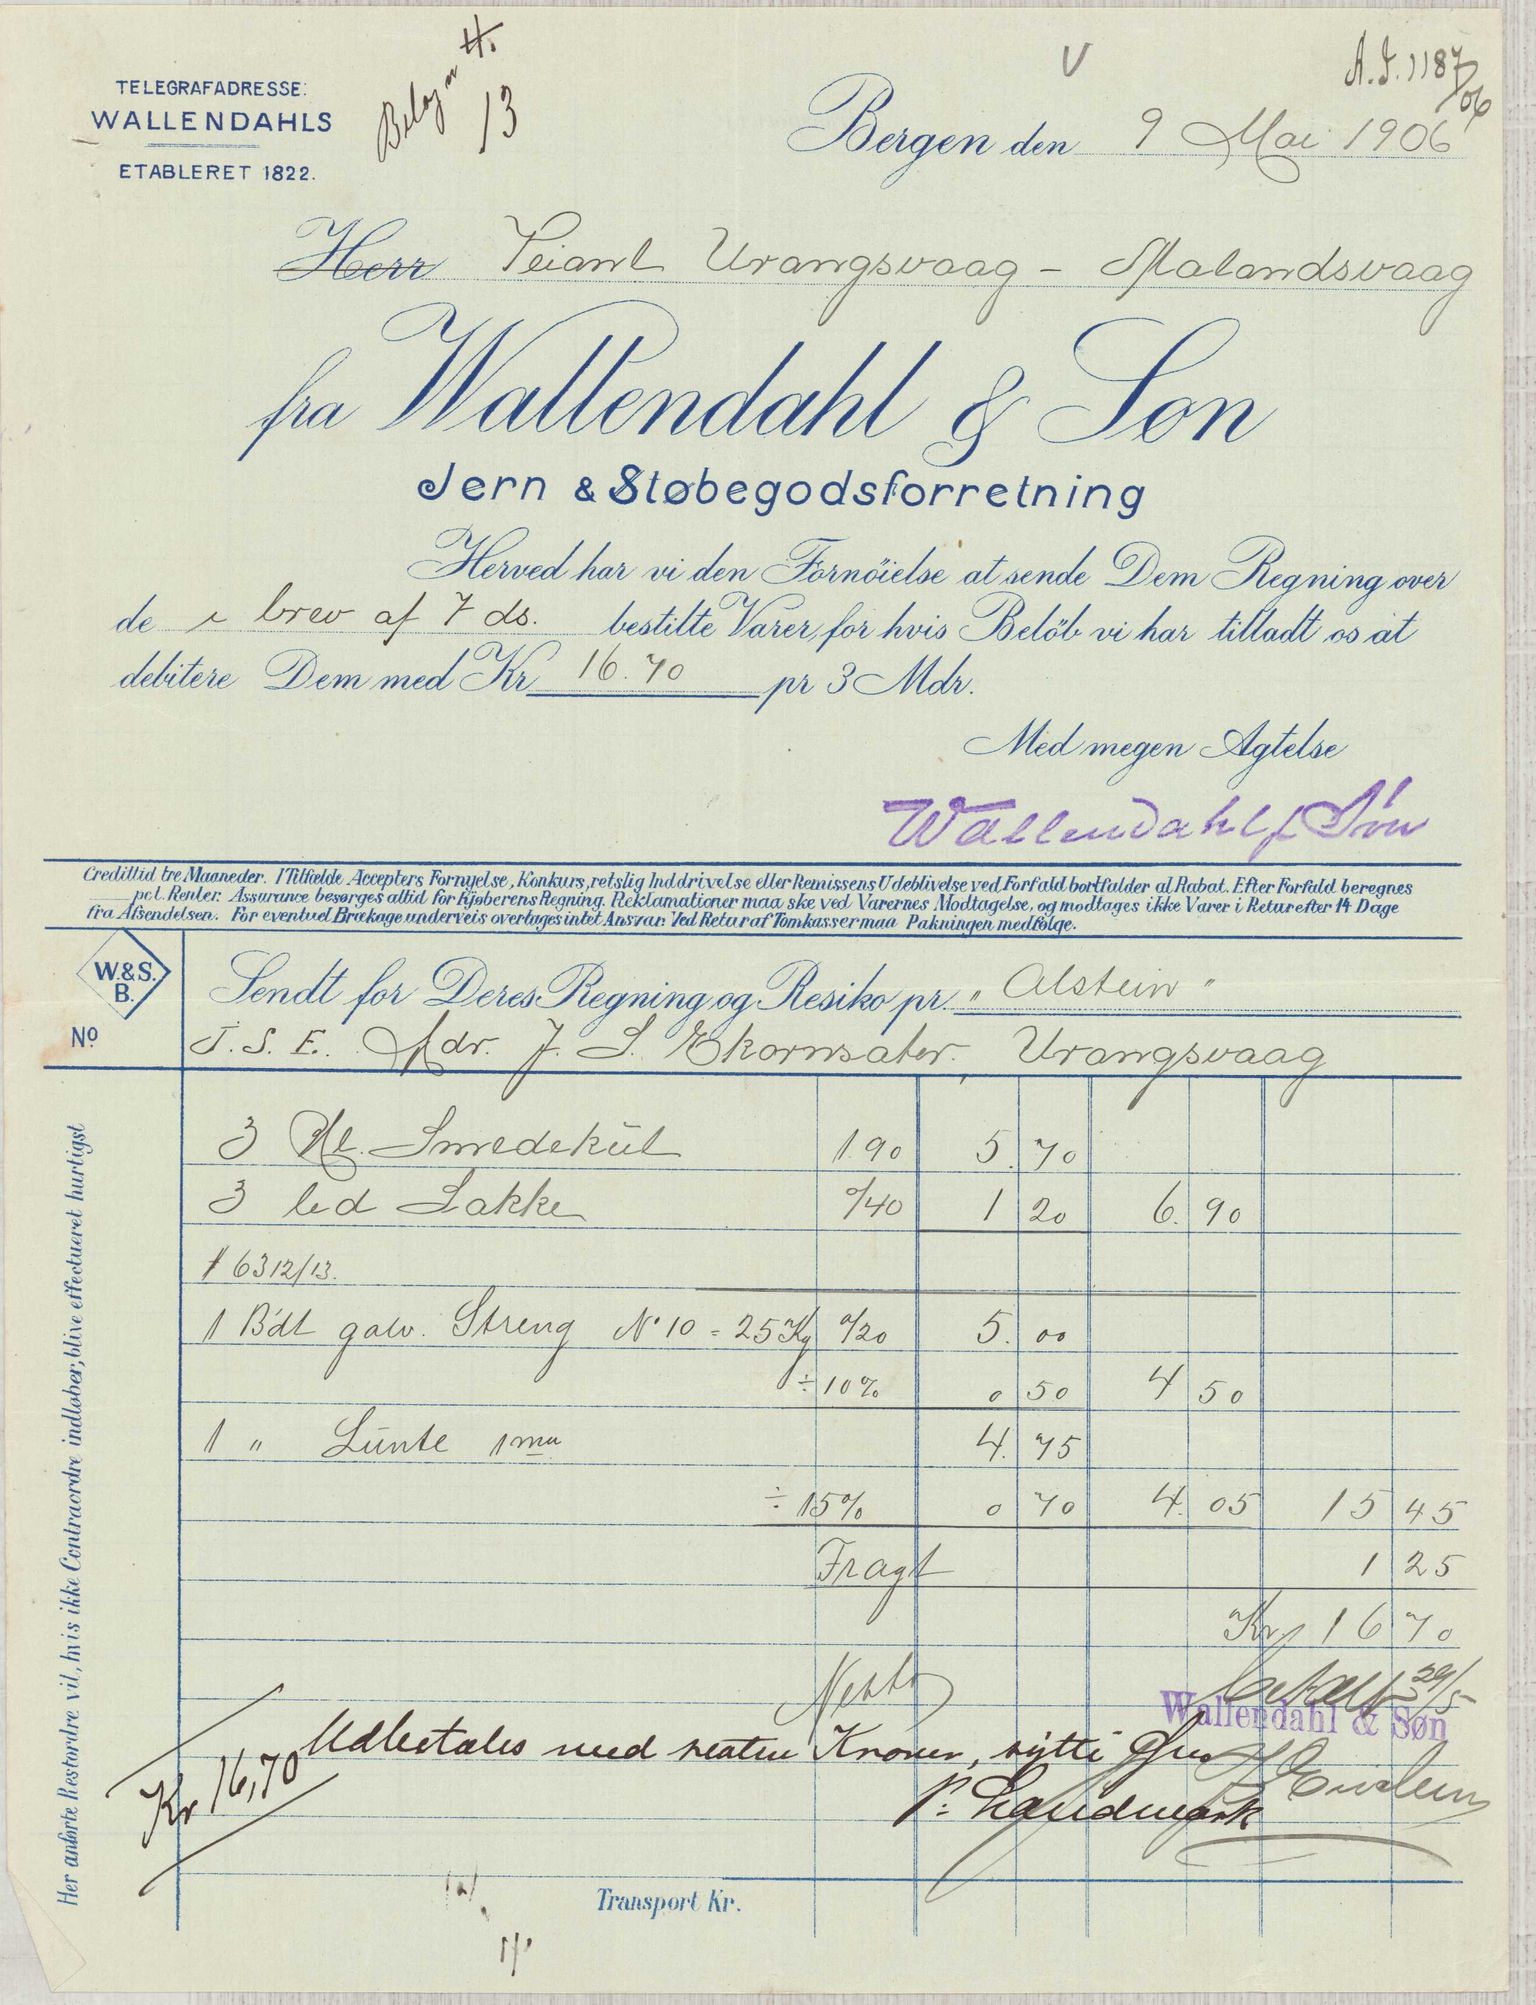 TELEGRAFADRESSE:
WALLENDAHLS
ETABLERET 1822.
13
A.J. 1187/06
Bergen den 9 Mai 1906
Herr Veianl Urangsvaag - Malandsvaag
fra Wallendahl & Søn
Jern & Støbegodsforretning
Herved har vi den Fornöielse at sende Dem Regning over
de i brev af 7 ds. bestilte Varer, for hvis Belöb vi har tilladt os at
debitere Dem med Kr 16.70 pr 3 Mdr.
Med megen Agtelse
Wallendahl & Søn
Credittid tre Maaneder. I Tilfælde Accepters Fornyelse, Konkurs, retslig Inddrivelse eller Remissens Udeblivelse ved Forfald bortfalder al Rabat. Efter Forfald beregnes
pct. Renter. Assurance besørges altid for Kjøberens Regning. Reklamationer maa ske ved Varernes Modtagelse, og modtages ikke Varer i Retur efter 14 Dage
fra Afsendelsen. For eventuel Brækage underveis overtages intet Ansvar. Ved Retur af Tomkasser maa Pakningen medfølge.
W. & S.
B.
No
Sendt for Deres Regning og Resiko pr. "Alstein"
J. S. E. Adr. J. S. Ekornsæter, Urangsvaag
3 Hl. Smedekul 1 90 5. 70
3 led Lakke 0/40 1 20 6. 90
1 6312/13.
1 Bdt galv. Streng No 10 = 25 Kg 0/20 5. 00
÷ 10% 0 50 4 50
1 " Lunte 1ma 4. 75
÷ 15% 0 70 4. 05 15 45
Fragt 1 25
Kr. 16 70
Netto
Betalt 29/5
Wallendahl & Søn
Udbetales med seisten Kroner, sytti Øre
Kr 16,70
p. Landmark
Transport Kr.
Her anførte Restordre vil, hvis ikke Contraordre indløber, blive effectueret hurtigst